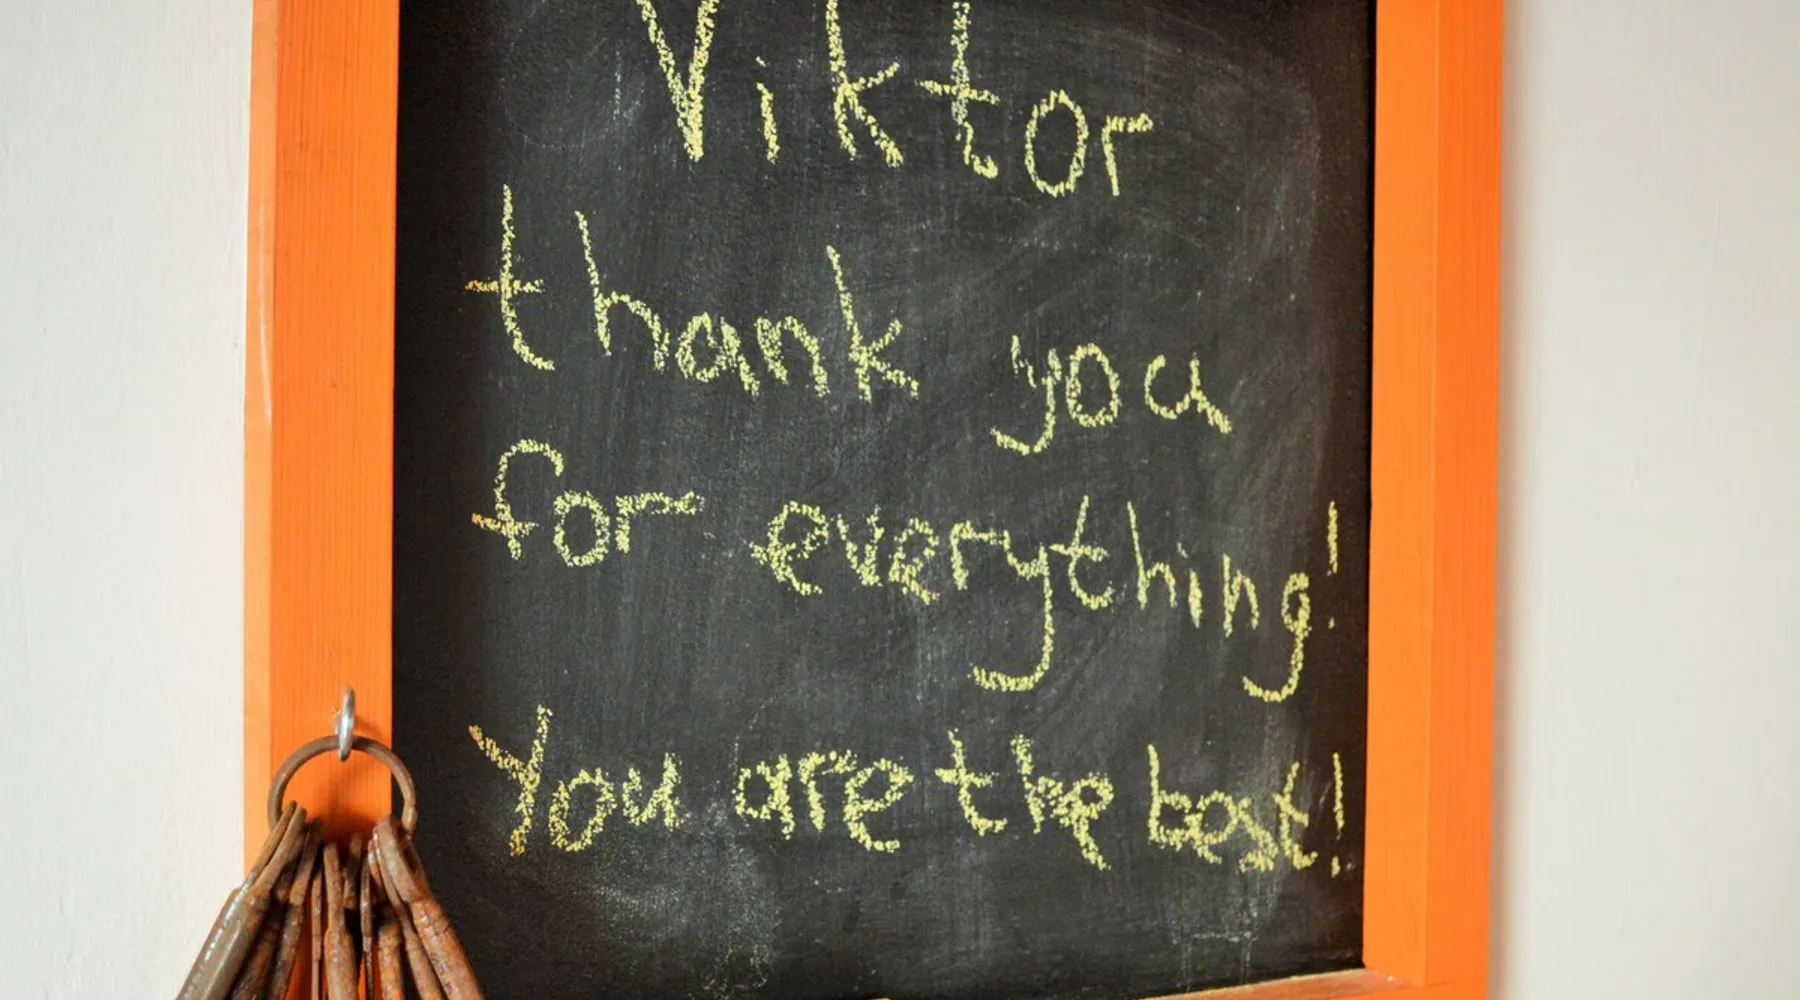 Viktor
thank you
for everything!
You are the best!